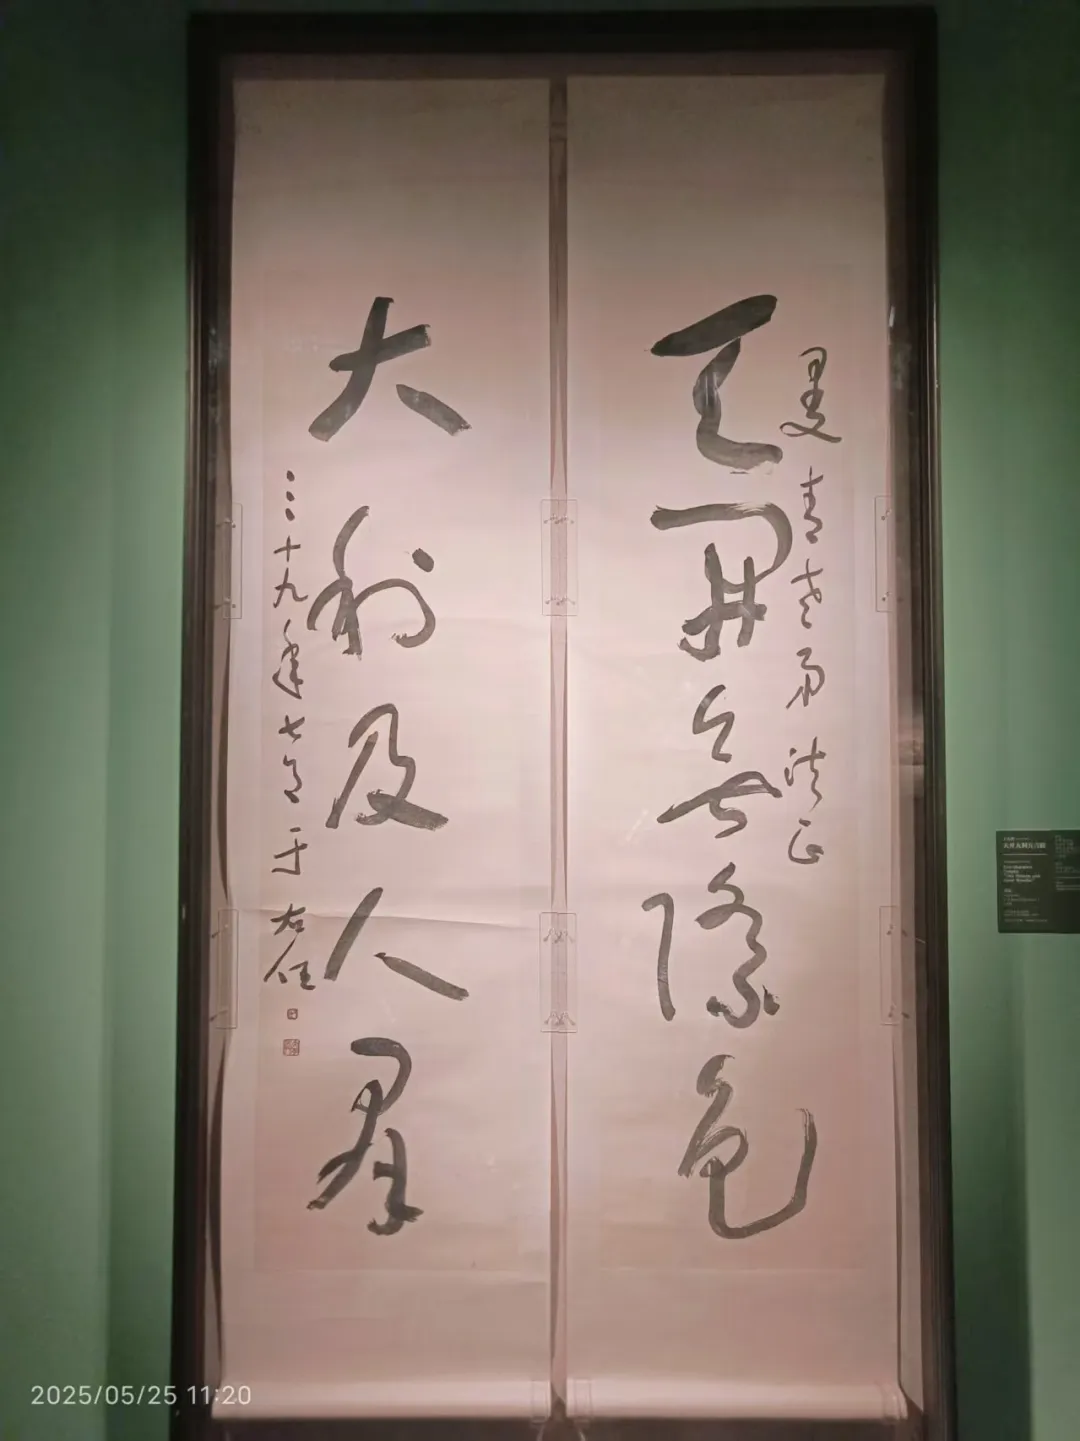 曼青老弟法正
天開無際色
大利及人羣
三十九年七月于右任
2025/05/25 11:20